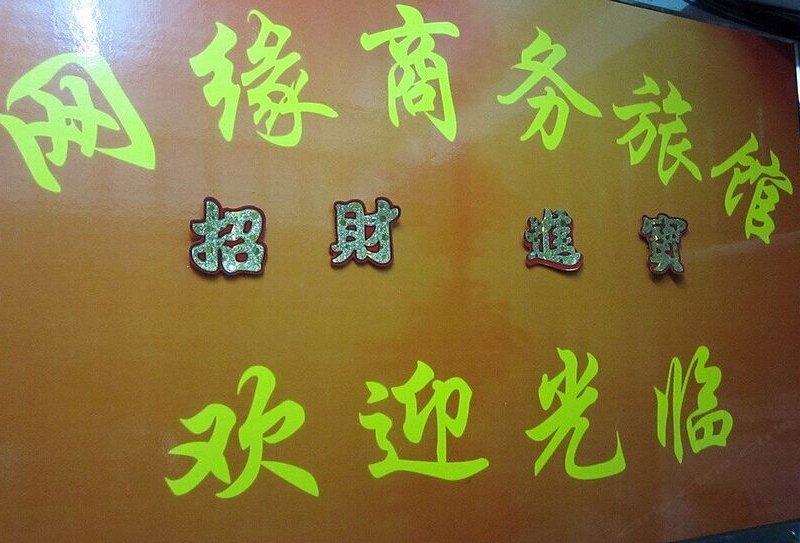 网缘商务旅馆
招财進寳
欢迎光临